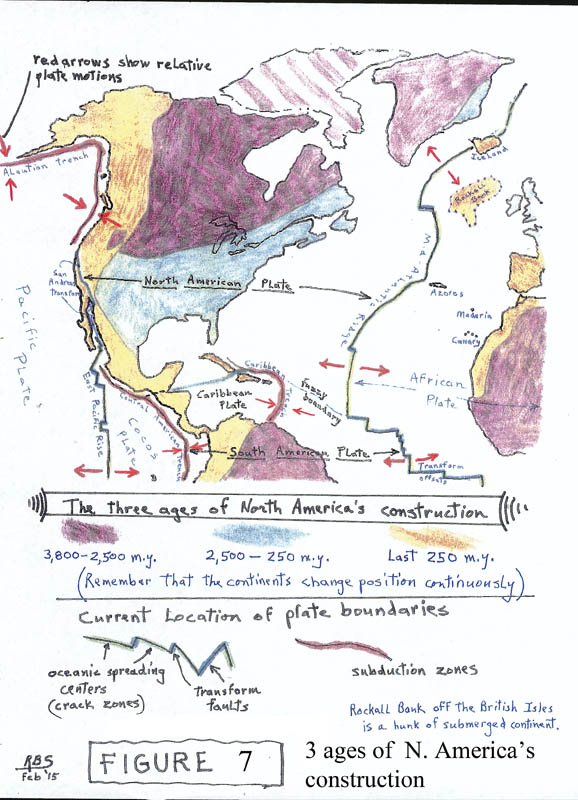 red arrows show relative
plate motions
Alaution trench
Iceland
Rockall
Bank
Mid Atlantic Ridge
San
Andreas
Transform
North American Plate
Azores
Maderia
Canary
Pacific Plate
Caribbean Trench
Caribbean
Plate
fuzzy
boundary
African
Plate
East Pacific Rise
Central American Trench
Cocos
Plate
South American Plate
Transform
offsets
B
The three ages of North America's construction
3,800-2,500 m.y.
2,500 - 250 m.y.
Last 250 m.y.
(Remember that the continents change position continuously)
Current Location of plate boundaries
oceanic spreading
centers
(crack zones)
transform
faults
subduction zones
Rockall Bank off the British Isles
is a hunk of submerged continent.
RBS
Feb '15
FIGURE 7
3 ages of N. America's
construction